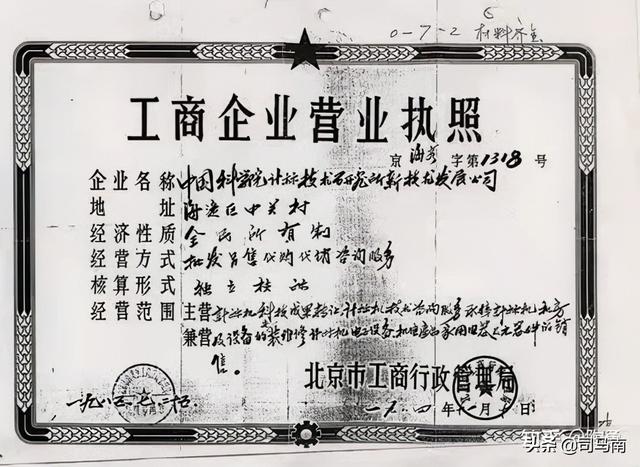 0-7-2 材料齐全
工商企业营业执照
京 海 字第1318号
企业名称 中国科学院计标技术研究所新技术发展公司
地址 海淀区中关村
经济性质 全民所有制
经营方式 批发另售代购代销咨询服务
核算形式 独立核祘
经营范围 主营 计祘机科技成果转让计祘机技术咨询服务承接计祘机机房
兼营 及设备的装维修计祘机电子设备 家用电器 元器件的销
售。
北京市工商行政管理局
一九八五 七 二五
一九 四年 月 日
头条 @司马南